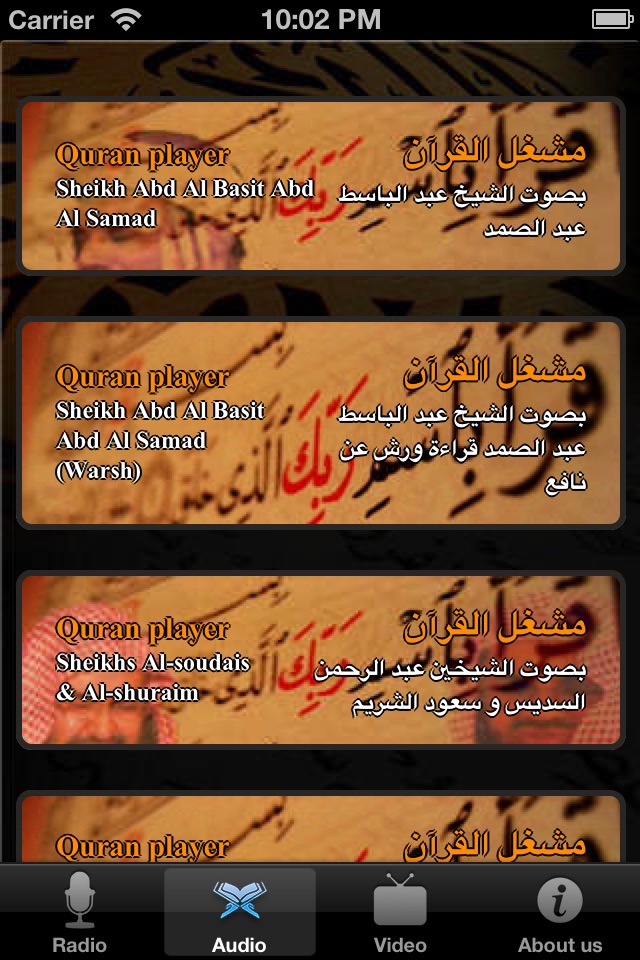 Carrier 10:02 PM
Quran player
Sheikh Abd Al Basit Abd
Al Samad
مشغل القرآن
بصوت الشيخ عبد الباسط
عبد الصمد
Quran player
Sheikh Abd Al Basit
Abd Al Samad
(Warsh)
مشغل القرآن
بصوت الشيخ عبد الباسط
عبد الصمد قراءة ورش عن
نافع
Quran player
Sheikhs Al-soudais
& Al-shuraim
مشغل القرآن
بصوت الشيخين عبد الرحمن
السديس و سعود الشريم
Quran player
مشغل القرآن
Radio
Audio
Video
About us